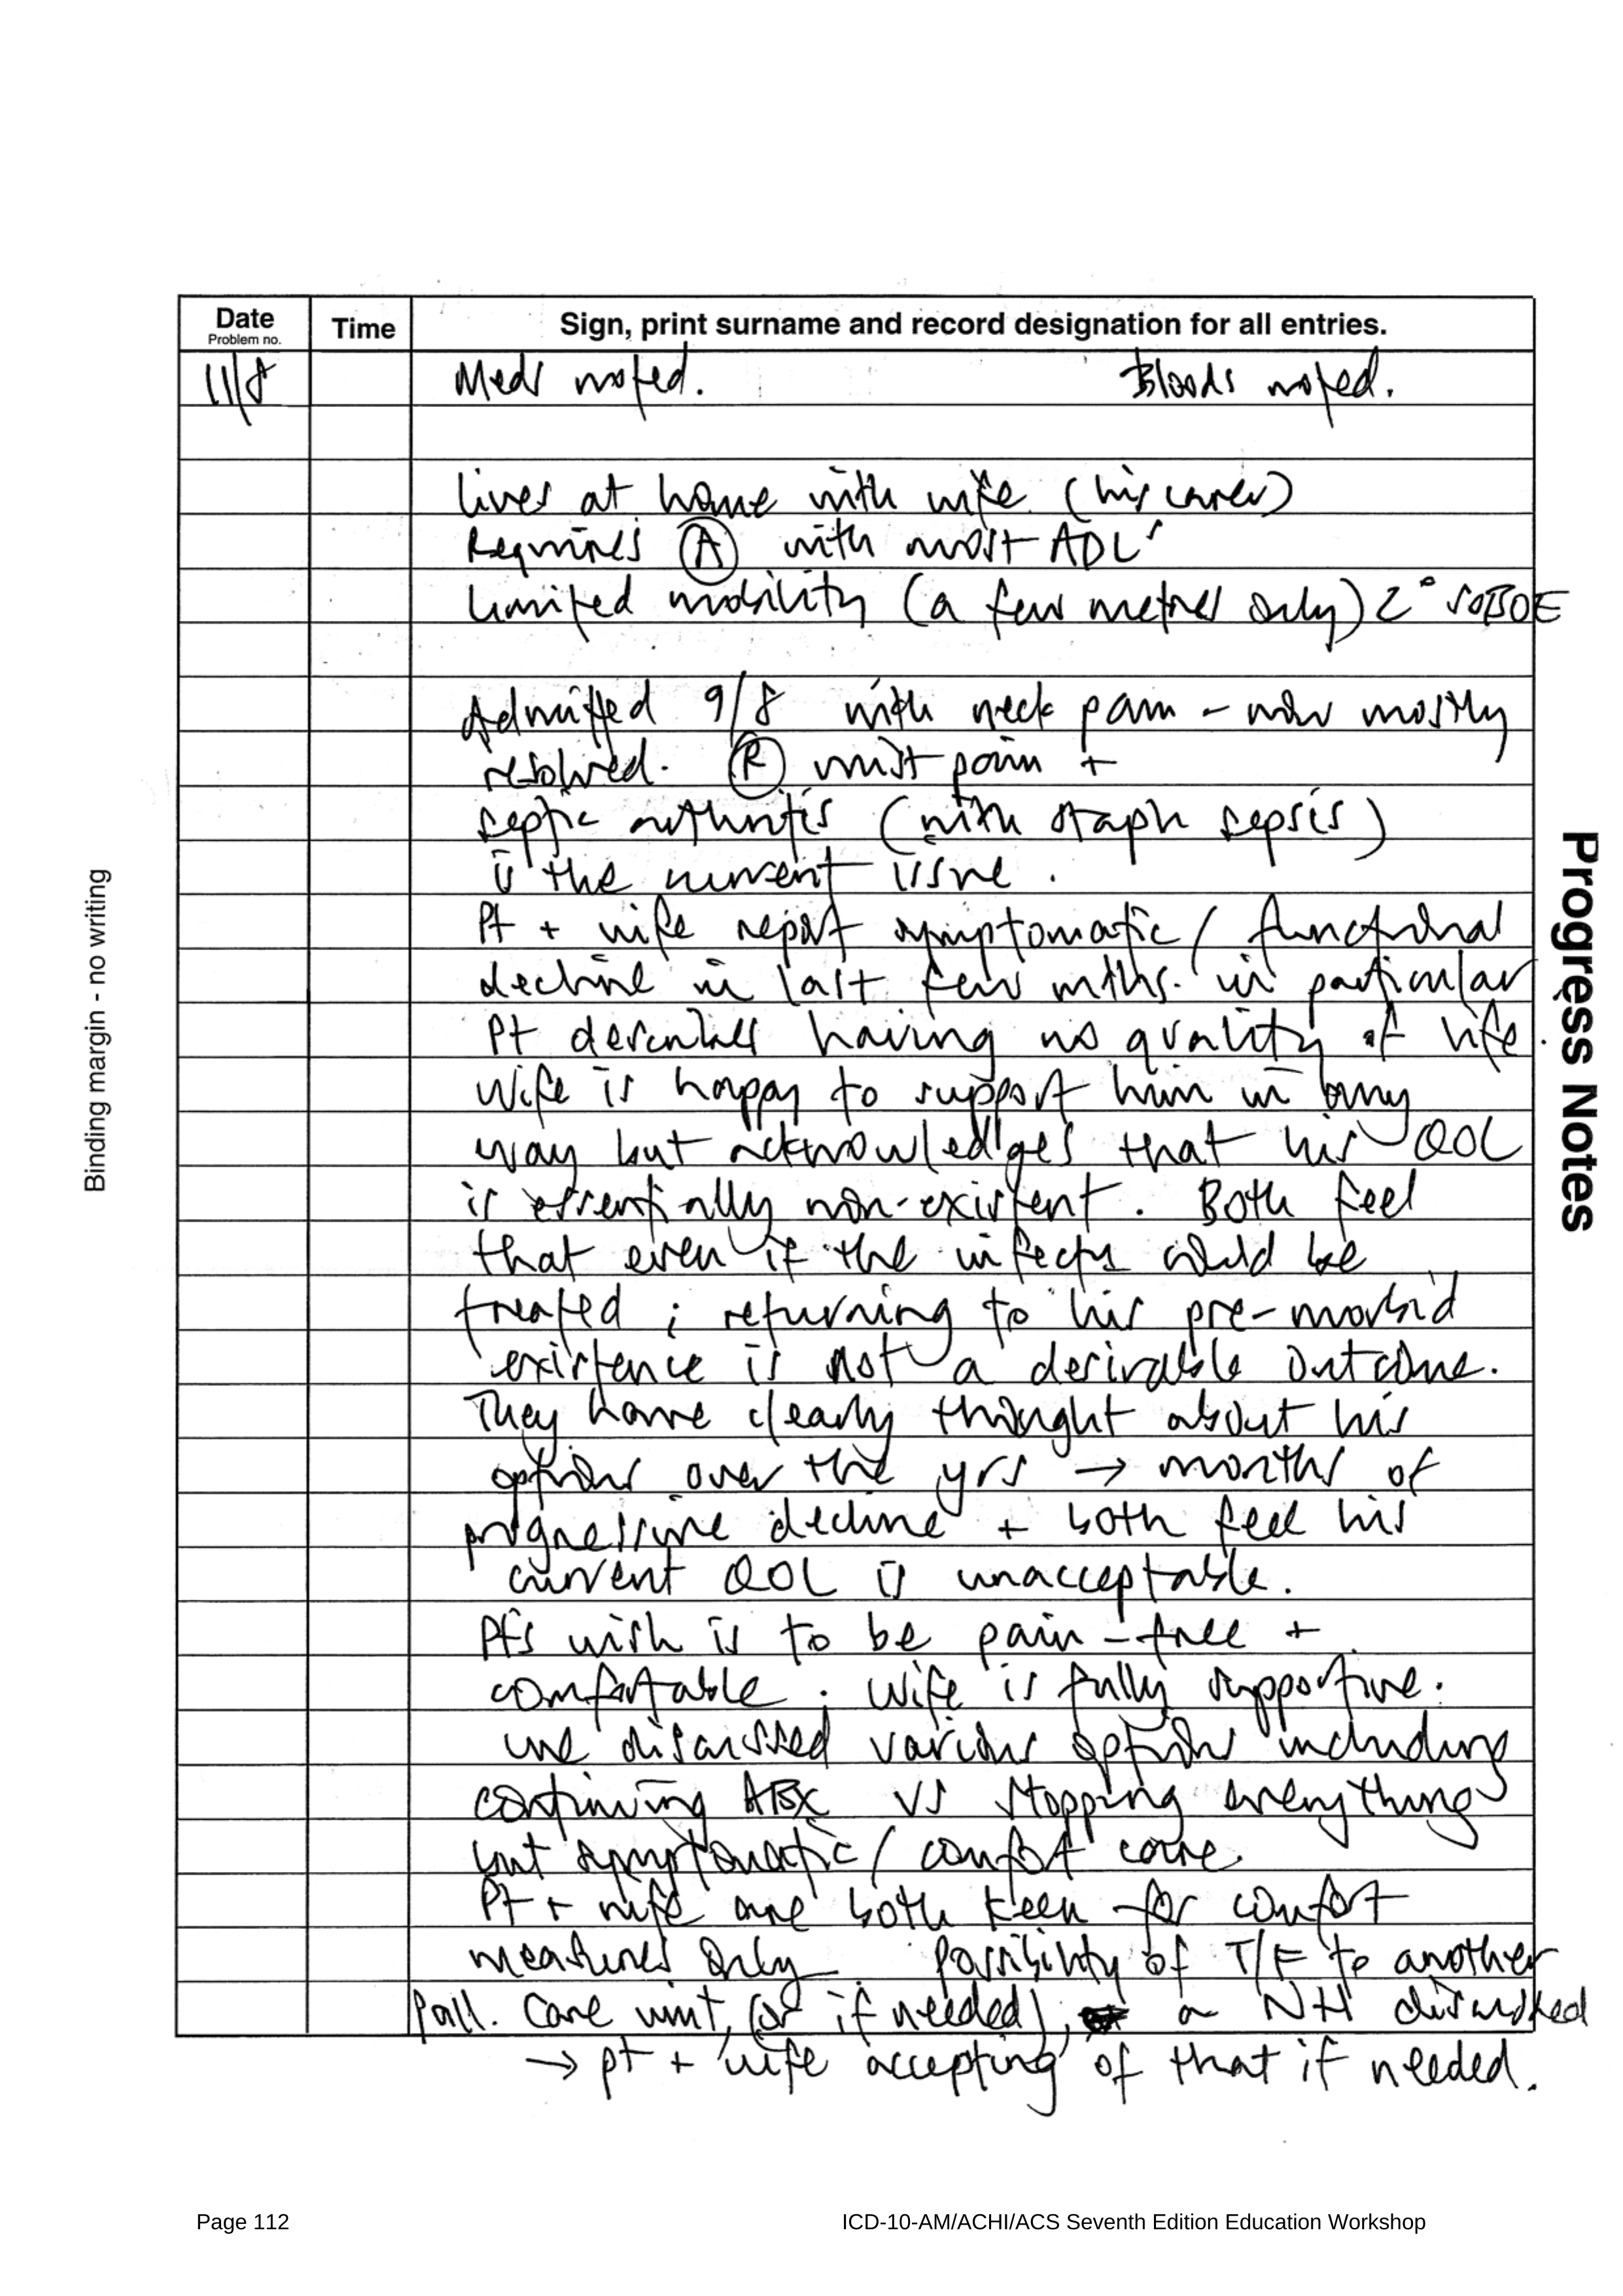 Date
Problem no.
Time
Sign, print surname and record designation for all entries.
11/8
Meds noted. Bloods noted.
Lives at home with wife (his carer)
Requires Ⓐ with most ADL's
Limited mobility (a few metres only) 2° SOBOE
Admitted 9/8 with neck pain - now mostly
resolved. Ⓡ wrist pain +
septic arthritis (with staph sepsis)
is the current issue.
Pt + wife report symptomatic / functional
decline in last few mths. in particular
Pt describes having no quality of life.
Wife is happy to support him in any
way but acknowledges that his QOL
is essentially non-existent. Both feel
that even if the infectn could be
treated ; returning to his pre-morbid
existence is not a desirable outcome.
They have clearly thought about his
options over the yrs → months of
progressive decline + both feel his
current QOL is unacceptable.
Pt's wish is to be pain-free +
comfortable. Wife is fully supportive.
we discussed various options including
continuing ABx vs stopping everything
but symptomatic / comfort care.
Pt + wife are both keen for comfort
measures only. Possibility of T/F to another
Pall. Care unit, (or if needed), a NH discussed
→ pt + wife accepting of that if needed.
Binding margin - no writing
Progress Notes
Page 112
ICD-10-AM/ACHI/ACS Seventh Edition Education Workshop